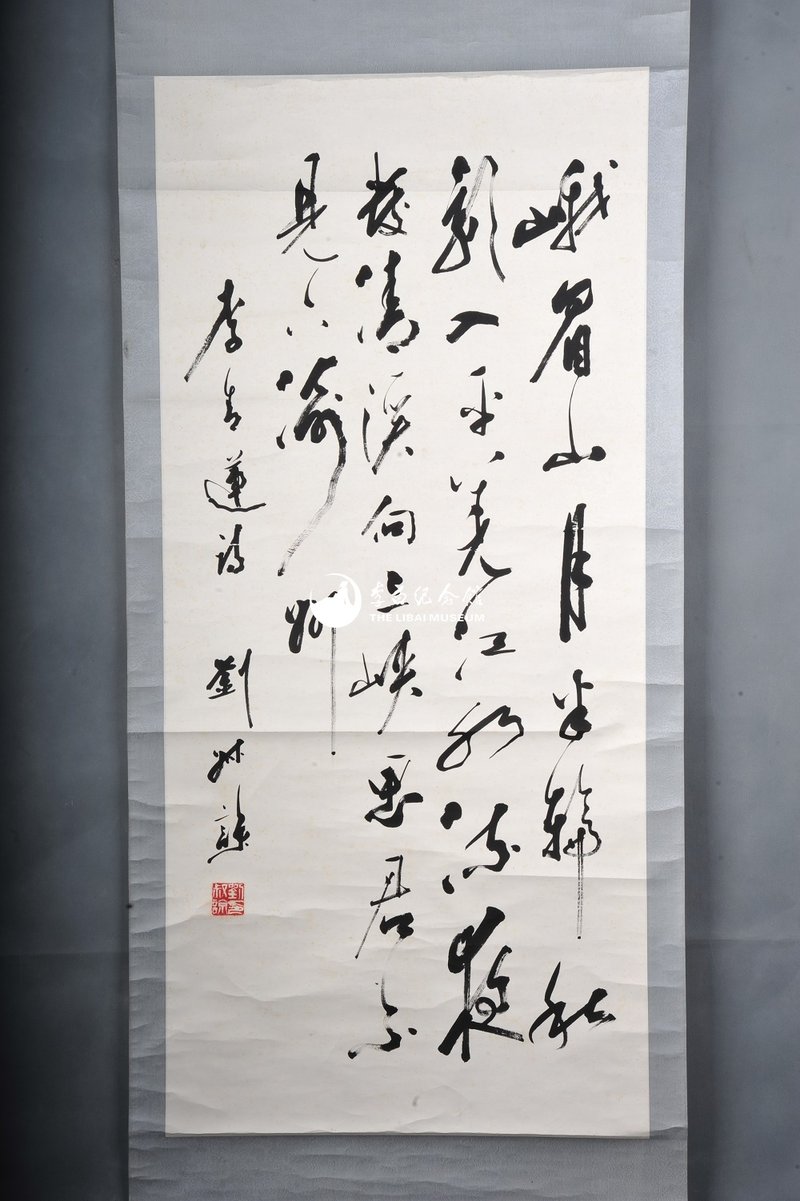 峨眉山月半輪秋
影入平羌江水流夜
發清溪向三峽思君不
見下渝州
李青蓮詩 劉叔
李白纪念馆
THE LIBAI MUSEUM